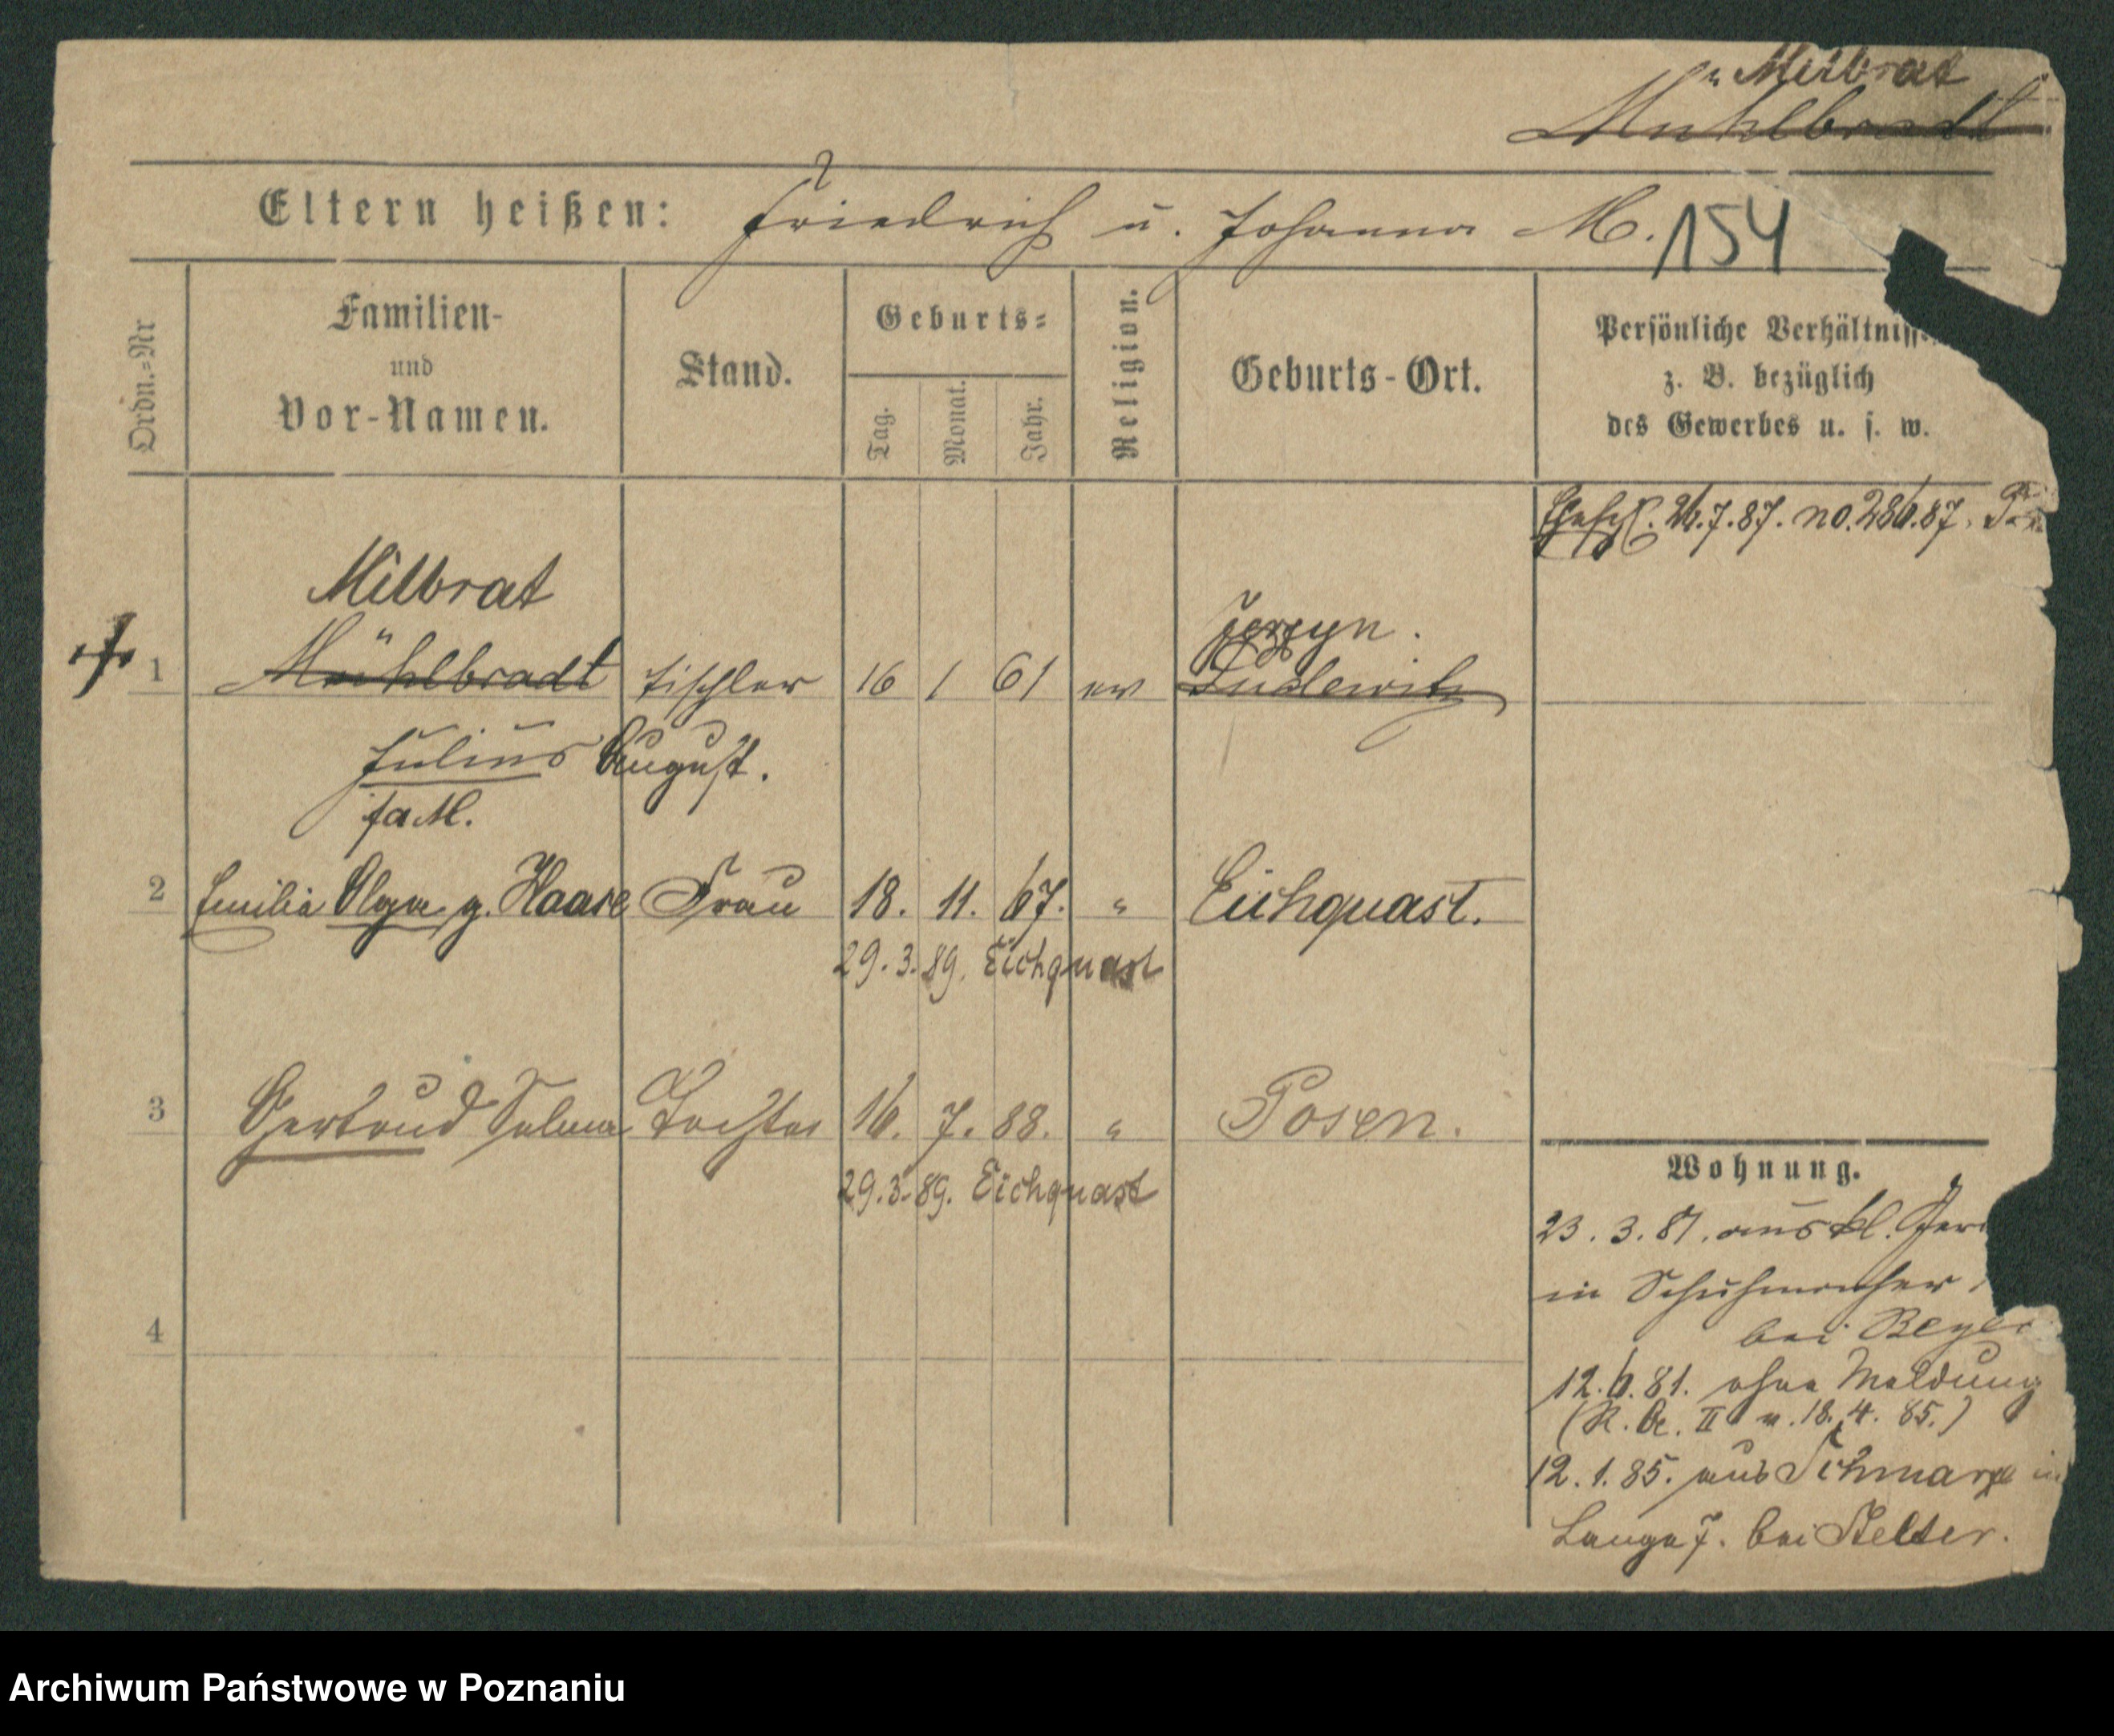 Milbrat
Mühlbradt
Eltern heißen: Friedrich u. Johanna M. 154
Ordn.-Nr
Familien-
und
Vor-Namen.
Stand.
Geburts-
Tag.
Monat.
Jahr.
Religion.
Geburts-Ort.
Persönliche Verhältnisse
z. B. bezüglich
des Gewerbes u. s. w.
Eheschl. 26.7.87. no. 286.87.
Milbrat
1 Mühlbradt Tischler 16 1 61 ev
Julius August.
2 Emilia Olga g. Haase Frau 18. 11. 67. " Eichquast.
29.3.89. Eichquast
3 Gertrud Selma Tochter 16. 7. 88. " Posen.
29.3.89. Eichquast
4
Wohnung.
23. 3. 81. aus kl. Ger
in Schuhmacher
bei Beyer
12.6.81. ohne Meldung
(R. Be. II v. 18. 4. 85.)
12.1.85. aus in
Lange 7. bei Stelter.
Archiwum Państwowe w Poznaniu